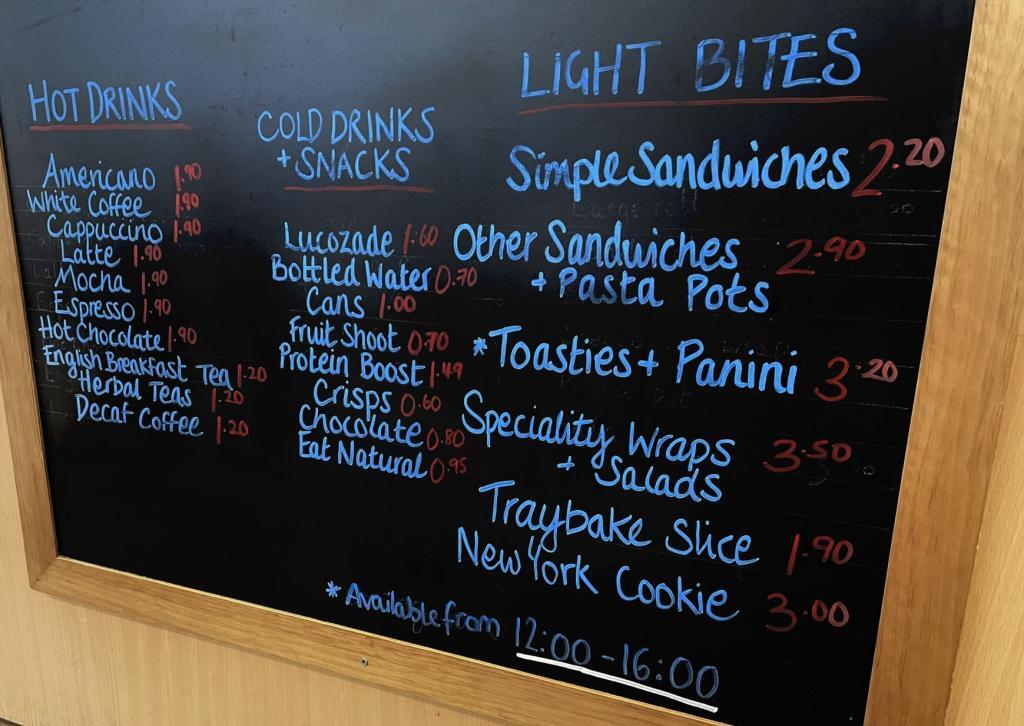 HOT DRINKS
Americano 1.90
White Coffee 1.90
Cappuccino 1.90
Latte 1.90
Mocha 1.90
Espresso 1.90
Hot Chocolate 1.90
English Breakfast Tea 1.20
Herbal Teas 1.20
Decaf Coffee 1.20
COLD DRINKS
+ SNACKS
Lucozade 1.60
Bottled Water 0.70
Cans 1.00
Fruit Shoot 0.70
Protein Boost 1.49
Crisps 0.60
Chocolate 0.80
Eat Natural 0.95
LIGHT BITES
Simple Sandwiches 2.20
Other Sandwiches 2.90
+ Pasta Pots
*Toasties + Panini 3.20
Speciality Wraps 3.50
+ Salads
Traybake Slice 1.90
New York Cookie 3.00
* Available from 12:00 - 16:00